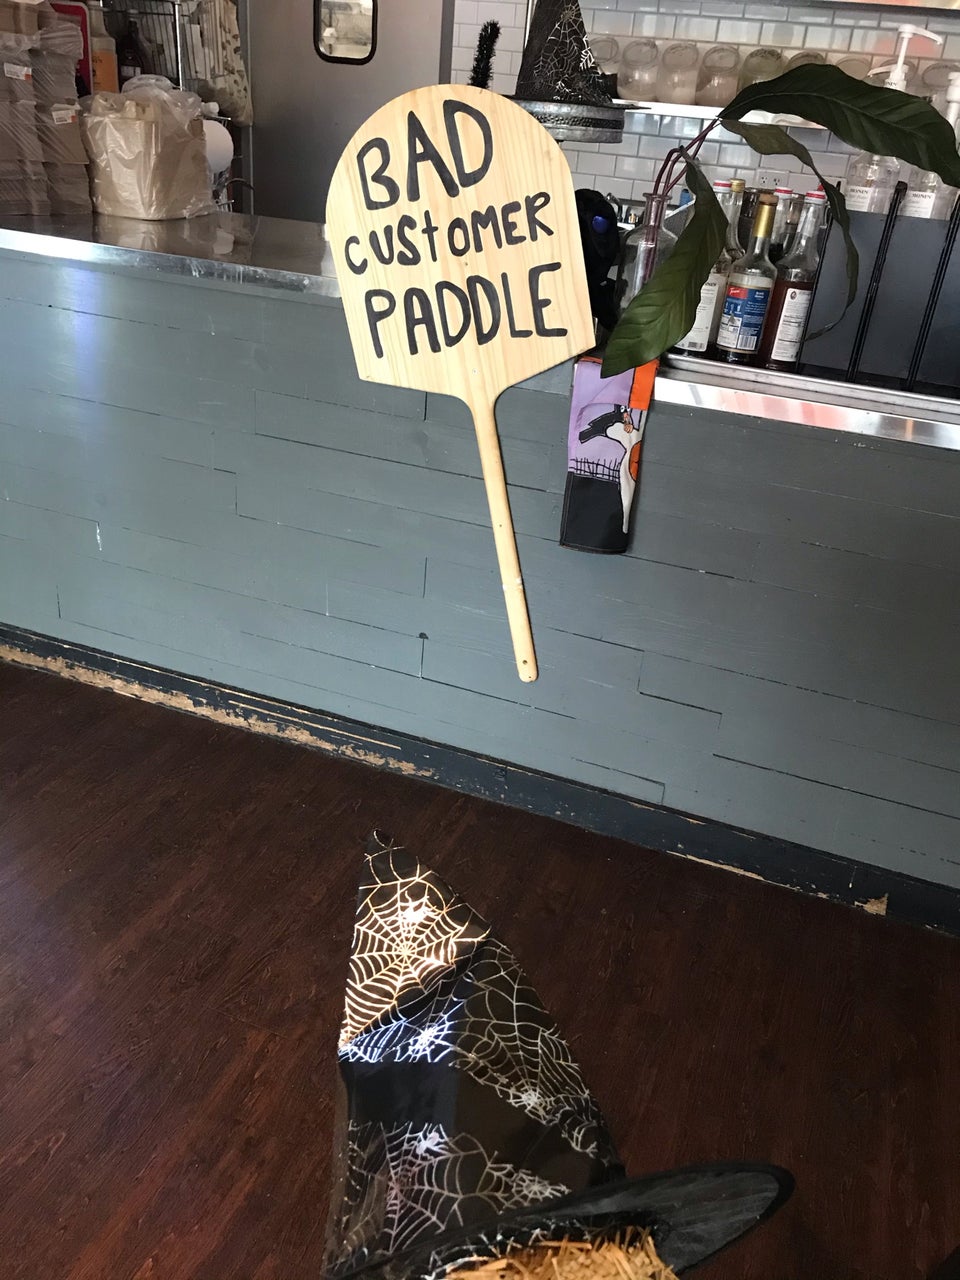 BAD
CUStOMER
PADDLE